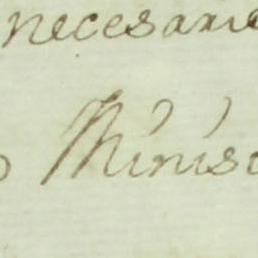 necesarie
Minist